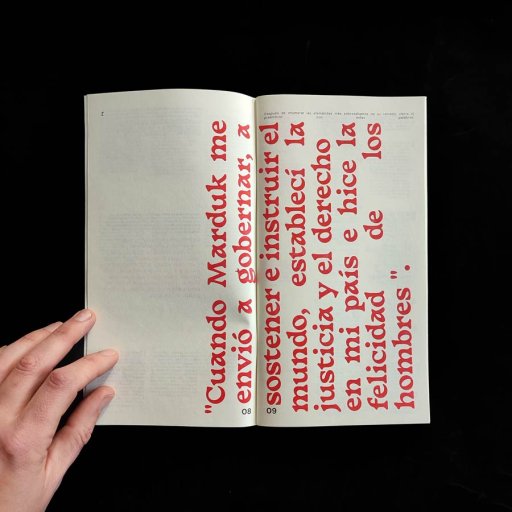 "Cuando Marduk me
envió a gobernar, a
sostener e instruir el
mundo, establecí la
justicia y el derecho
en mi país e hice la
felicidad de los
hombres".
08
09